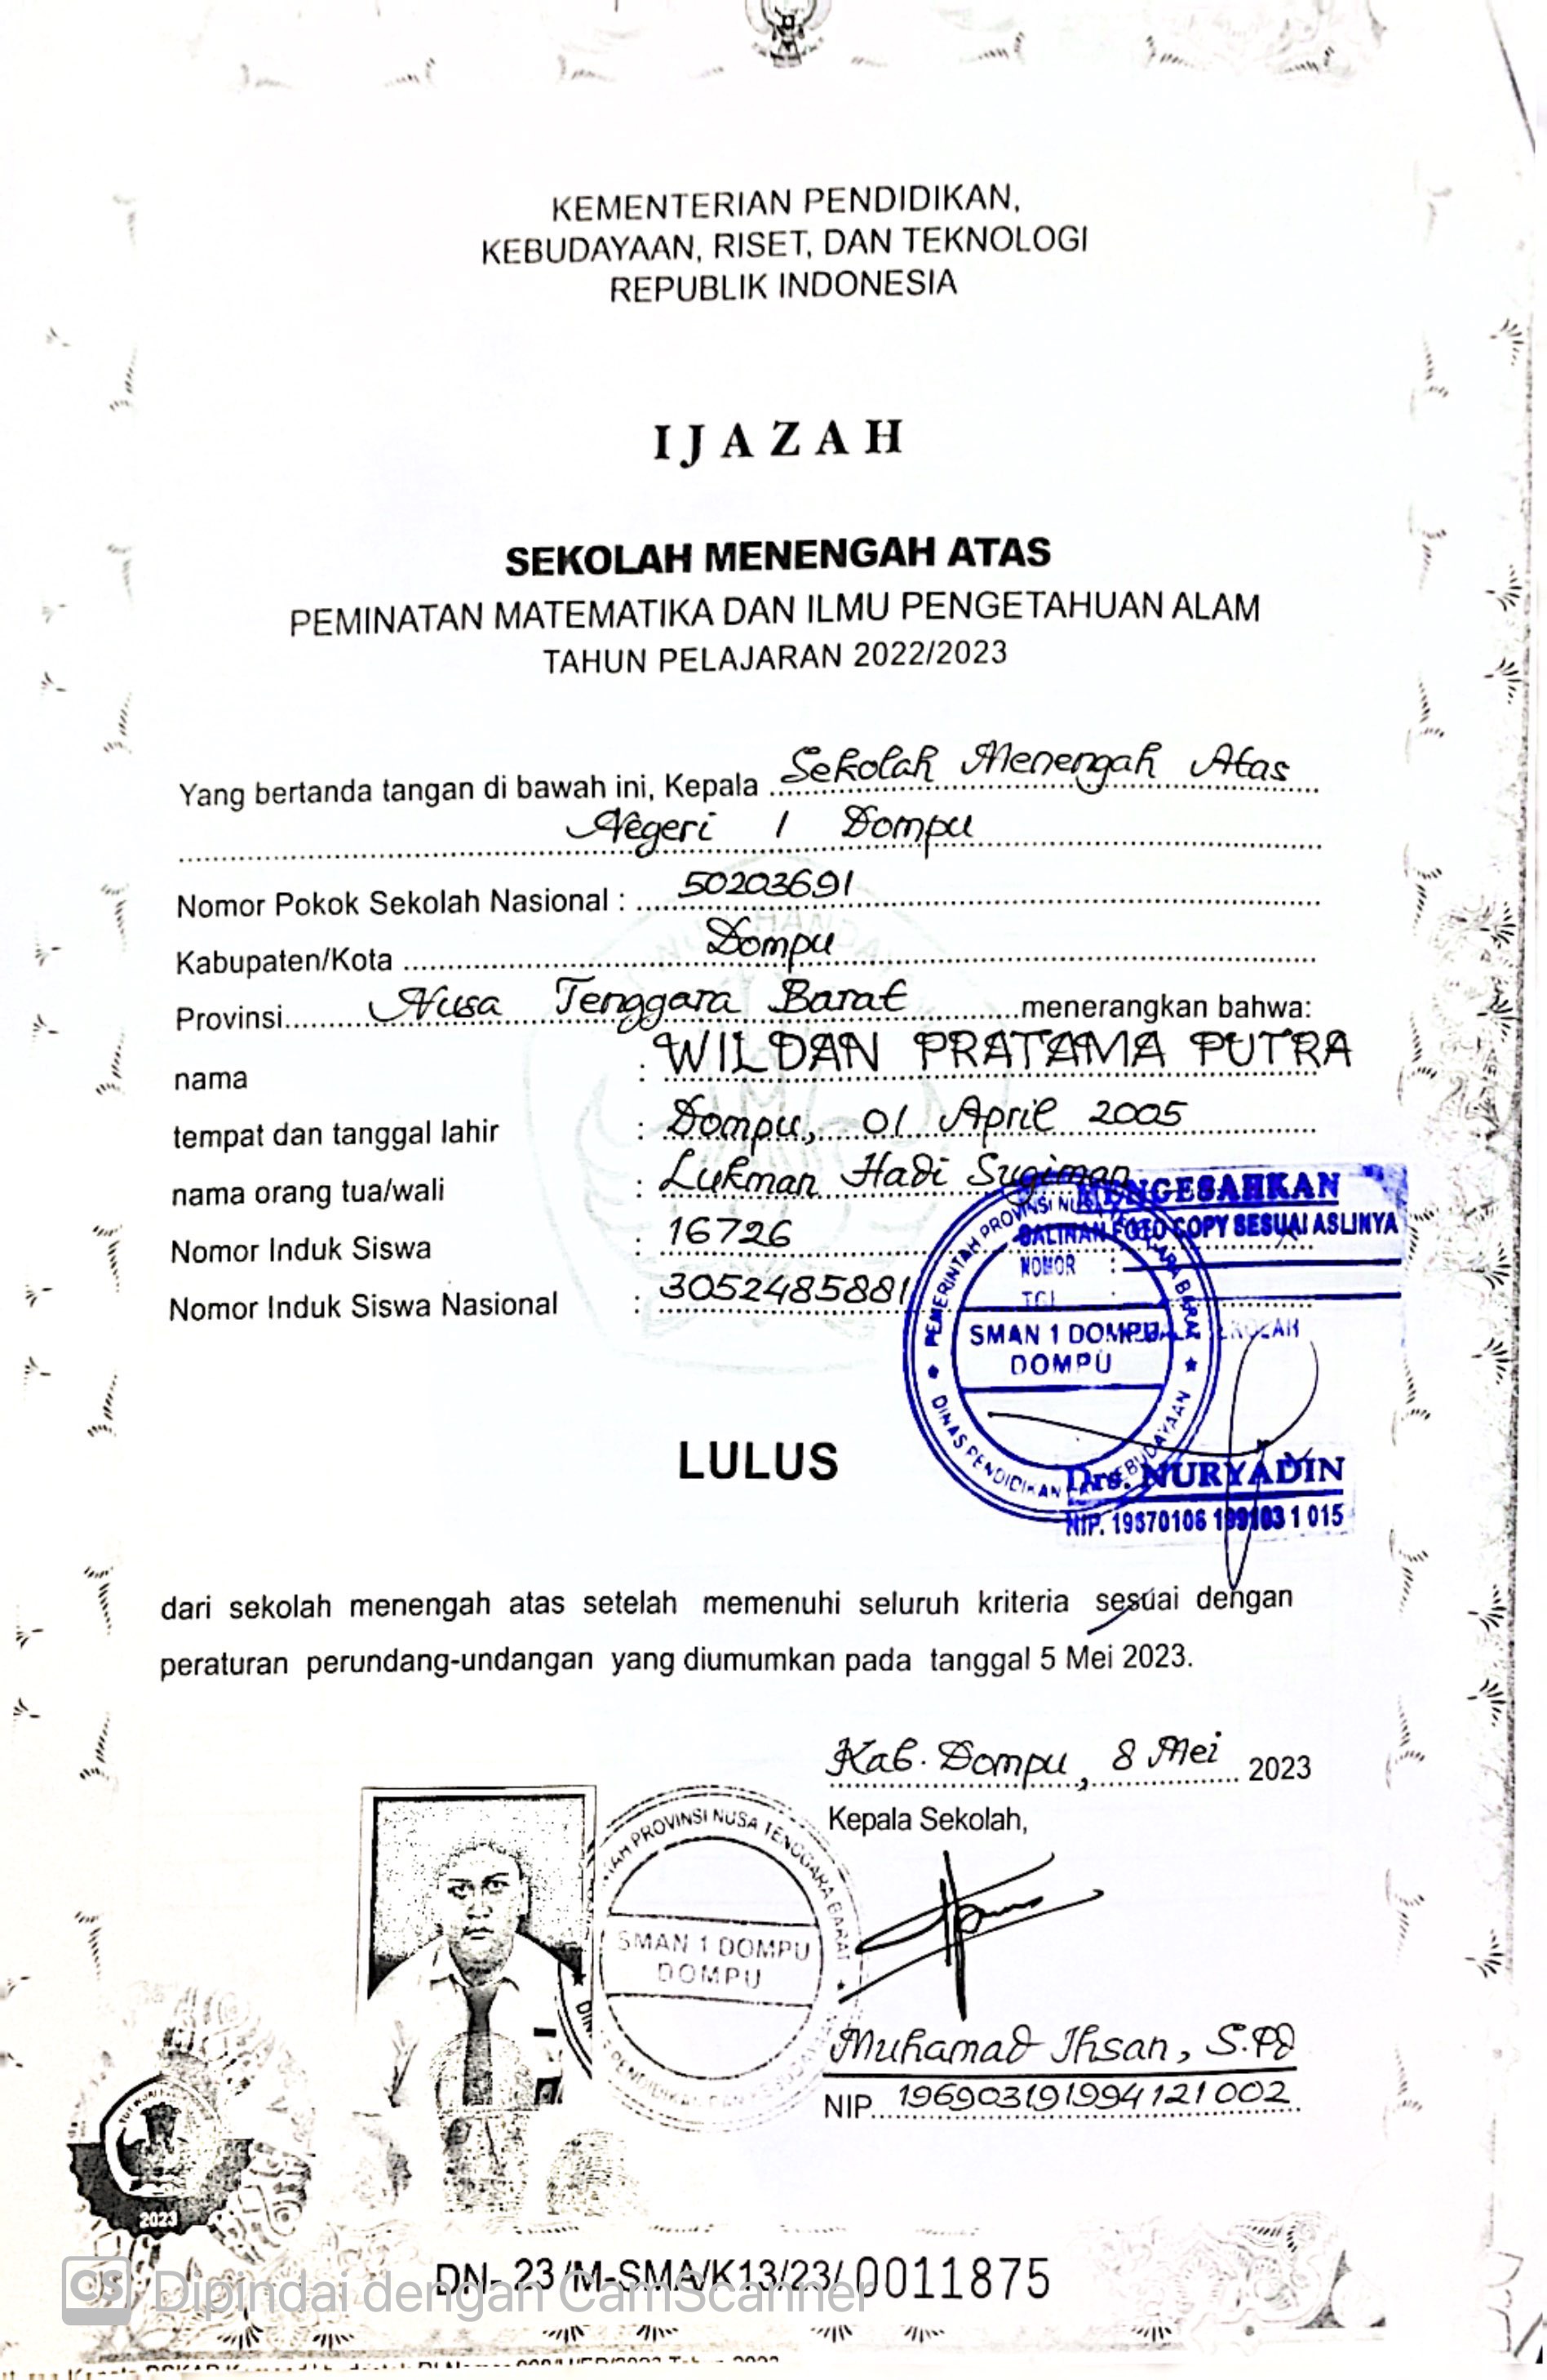 KEMENTERIAN PENDIDIKAN,
KEBUDAYAAN, RISET, DAN TEKNOLOGI
REPUBLIK INDONESIA
IJAZAH
SEKOLAH MENENGAH ATAS
PEMINATAN MATEMATIKA DAN ILMU PENGETAHUAN ALAM
TAHUN PELAJARAN 2022/2023
Yang bertanda tangan di bawah ini, Kepala Sekolah Menengah Atas
Negeri 1 Dompu
Nomor Pokok Sekolah Nasional : 50203691
Kabupaten/Kota Dompu
Provinsi Nusa Tenggara Barat menerangkan bahwa:
nama : WILDAN PRATAMA PUTRA
tempat dan tanggal lahir : Dompu, 01 April 2005
nama orang tua/wali : Lukman Hadi Sugiman
Nomor Induk Siswa : 16726
Nomor Induk Siswa Nasional : 3052485881
MENGESAHKAN
SALINAN FOTO COPY SESUAI ASLINYA
NOMOR :
TGL :
PEMERINTAH PROVINSI NUSA TENGGARA BARAT
SMAN 1 DOMPU
DOMPU
DINAS PENDIDIKAN DAN KEBUDAYAAN
SEKOLAH
Drs. NURYADIN
NIP. 19670106 199103 1 015
LULUS
dari sekolah menengah atas setelah memenuhi seluruh kriteria sesuai dengan
peraturan perundang-undangan yang diumumkan pada tanggal 5 Mei 2023.
Kab. Dompu, 8 Mei 2023
Kepala Sekolah,
PROVINSI NUSA TENGGARA BARAT
SMAN 1 DOMPU
DOMPU
PENDIDIKAN DAN KEBUDAYAAN
Muhamad Ihsan, S.Pd
NIP. 196903191994121002
2023
DN-23/M-SMA/K13/23/0011875
CS Dipindai dengan CamScanner